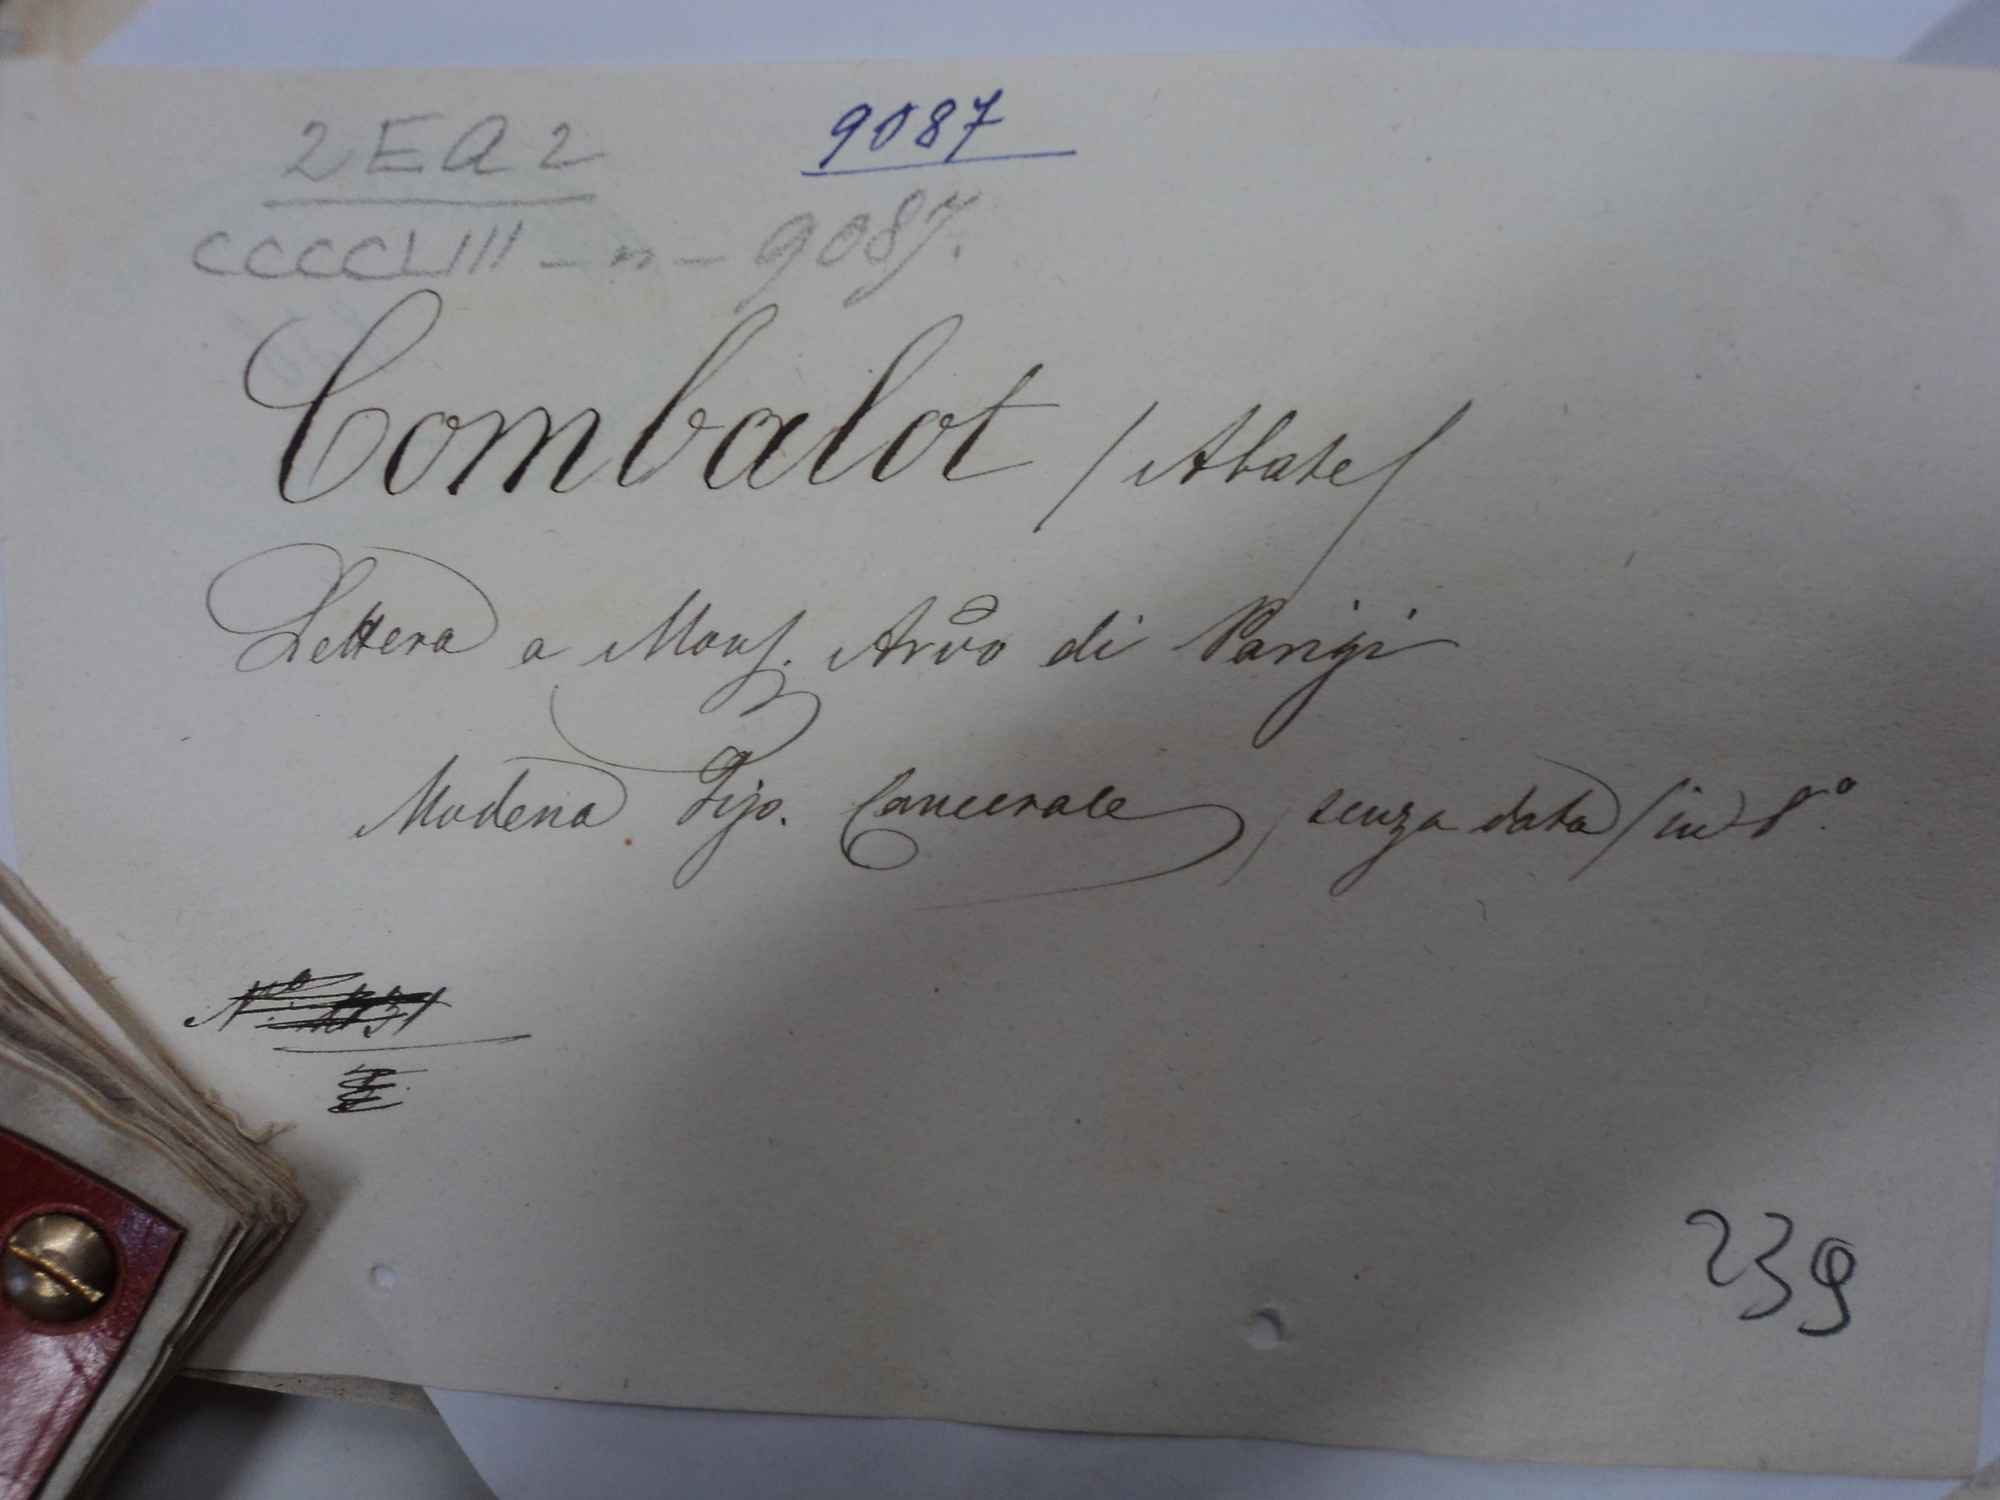 2 E A 2
9087
CCCCLIII - n - 9087.
Combalot / Abate /
Lettera a Monsr. Arvo di Parigi
Modena Tipo. Camerale / senza data / in 8°.
N°.
239